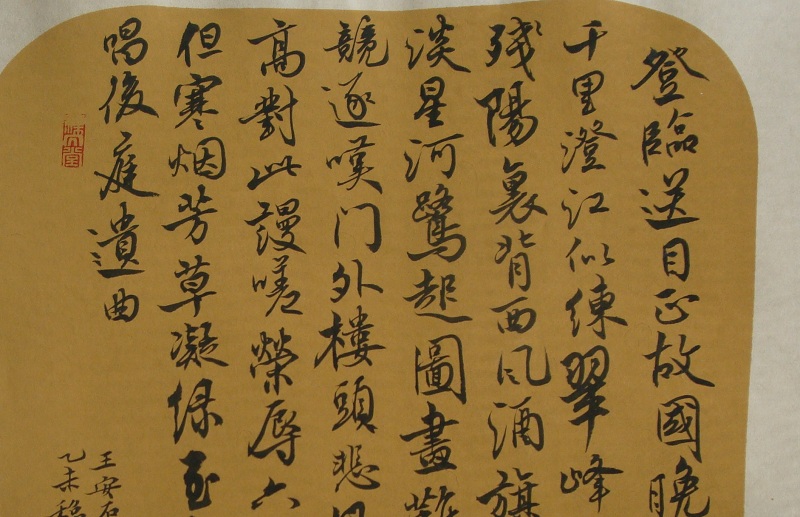 登臨送目正故國晚
千里澄江似練翠峰
残陽裏背西风酒旗
淡星河鷺起圖畫難
競逐嘆门外樓頭悲
高對此謾嗟榮辱六
但寒烟芳草凝绿至
唱後庭遺曲
王安石
乙未